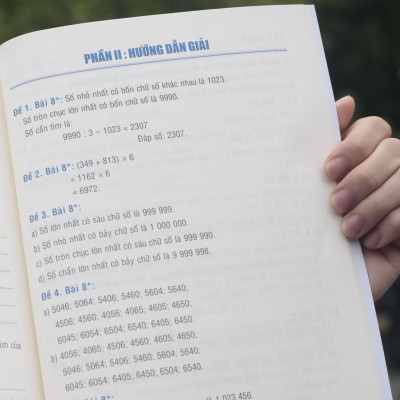 PHẦN II : HƯỚNG DẪN GIẢI
Đề 1. Bài 8*: Số nhỏ nhất có bốn chữ số khác nhau là 1023.
Số tròn chục lớn nhất có bốn chữ số là 9990.
Số cần tìm là:
9990 : 3 – 1023 = 2307
Đáp số: 2307.
Đề 2. Bài 8*: (349 + 813) × 6
= 1162 × 6
= 6972.
Đề 3. Bài 8*:
a) Số lớn nhất có sáu chữ số là 999 999.
b) Số nhỏ nhất có bảy chữ số là 1 000 000.
c) Số tròn chục lớn nhất có sáu chữ số là 999 990.
d) Số chẵn lớn nhất có bảy chữ số là 9 999 998.
Đề 4. Bài 8*:
a) 5046; 5064; 5406; 5460; 5604; 5640;
4506; 4560; 4056; 4065; 4605; 4650;
6045; 6054; 6504; 6540; 6405; 6450.
b) 4056; 4065; 4506; 4560; 4605; 4650;
5046; 5064; 5406; 5460; 5604; 5640;
6045; 6054; 6405; 6450; 6504; 6540.
8*:
là 1 023 456.
ăm của